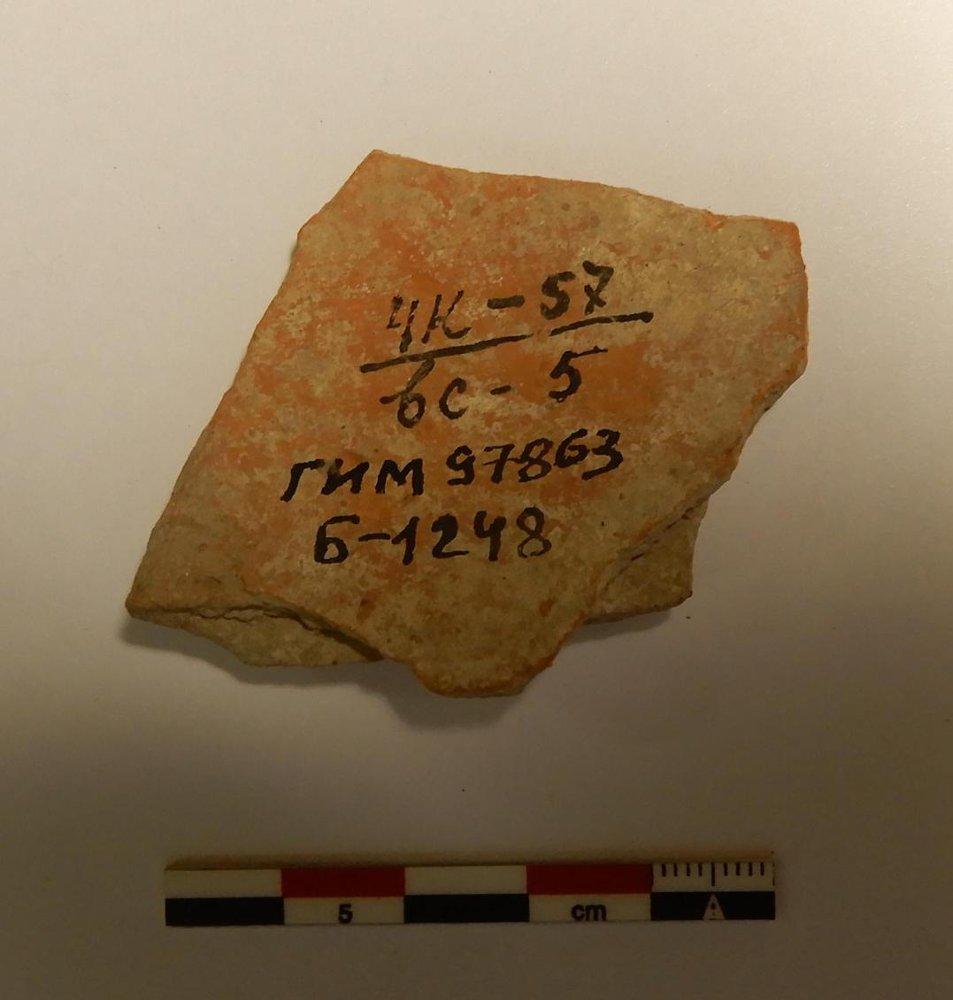 ЧК-57
вс-5
ГИМ 97863
Б-1248
5 cm